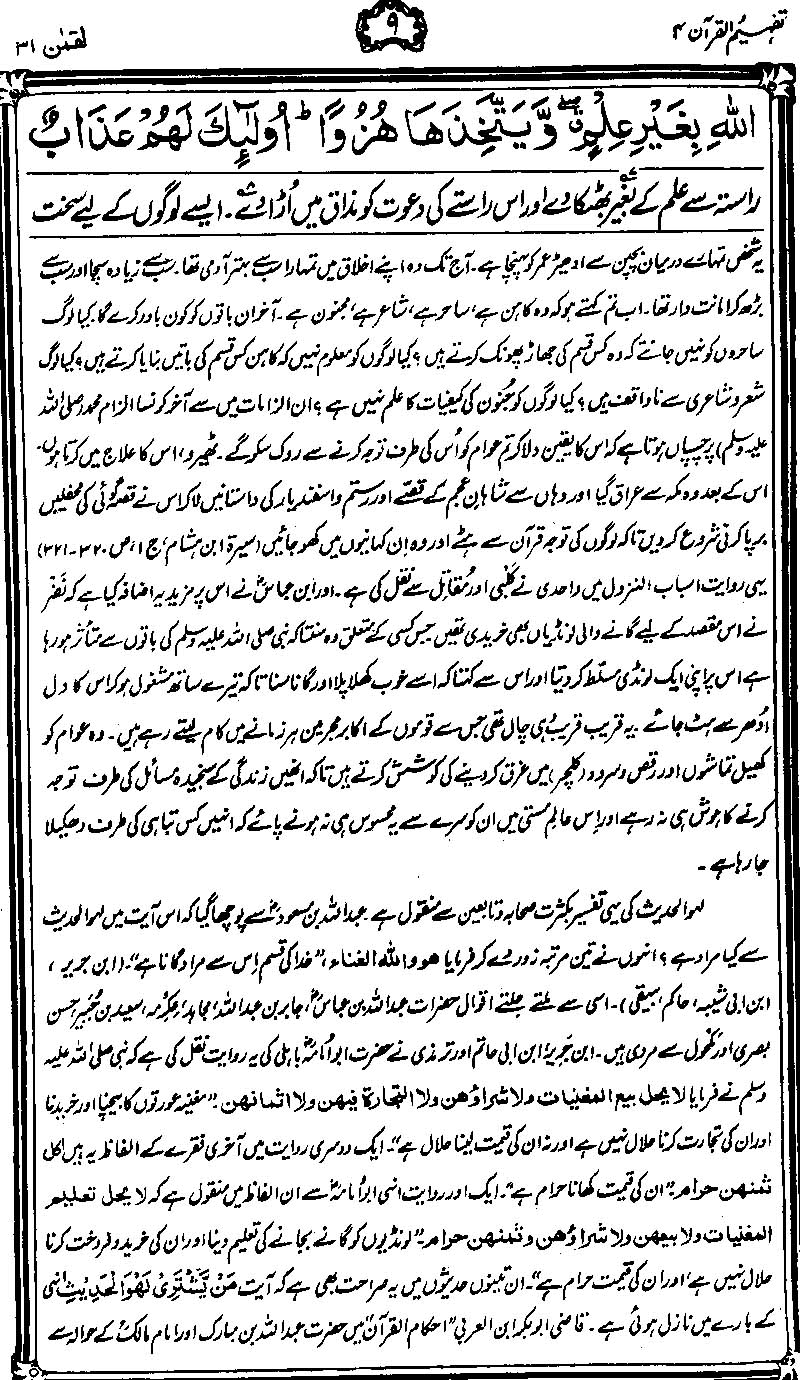 تفہیم القرآن ۴
۹
لقمٰن ۳۱
اللّٰهِ بِغَيْرِ عِلْمٍ ۖ وَّيَتَّخِذَهَا هُزُوًا ؕ اُولٰٓئِكَ لَهُمْ عَذَابٌ
راستہ سے علم کے بغیر بھٹکا دے اور اس راستے کی دعوت کو مذاق میں اُڑا دے۔ ایسے لوگوں کے لیے سخت
یہ شخص تمہارے درمیان بچپن سے ادھیڑ عمر کو پہنچا ہے۔ آج تک وہ اپنے اخلاق میں تمہارا سب سے بہتر آدمی تھا۔ سب سے زیادہ سچا اور سب سے
بڑھ کر امانت دار تھا۔ اب تم کہتے ہو کہ وہ کاہن ہے، ساحر ہے، شاعر ہے، مجنون ہے۔ آخر ان باتوں کو کون باور کرے گا۔ کیا لوگ
ساحروں کو نہیں جانتے کہ وہ کس قسم کی جھاڑ پھونک کرتے ہیں؟ کیا لوگوں کو معلوم نہیں کہ کاہن کس قسم کی باتیں بنایا کرتے ہیں؟ کیا لوگ
شعر و شاعری سے ناواقف ہیں؟ کیا لوگوں کو جنون کی کیفیات کا علم نہیں ہے؟ ان الزامات میں سے آخر کونسا الزام محمد (صلی اللہ
علیہ وسلم) پر چسپاں ہوتا ہے کہ اس کا یقین دلا کر تم عوام کو اُس کی طرف توجہ کرنے سے روک سکو گے۔ ٹھیرو، اس کا علاج میں کرتا ہوں“
اس کے بعد وہ مکہ سے عراق گیا اور وہاں سے شاہانِ عجم کے قصے اور رستم و اسفندیار کی داستانیں لا کر اس نے قصہ گوئی کی محفلیں
برپا کرنی شروع کر دیں تاکہ لوگوں کی توجہ قرآن سے ہٹے اور وہ ان کہانیوں میں کھو جائیں (سیرۃ ابن ہشام، ج ۱، ص ۳۲۰-۳۲۱)
یہی روایت اسباب النزول میں واحدی نے کلبی اور مُقاتل سے نقل کی ہے۔ اور ابن عباسؓ نے اس پر مزید یہ اضافہ کیا ہے کہ نَضْر
نے اس مقصد کے لیے گانے والی لونڈیاں بھی خریدی تھیں جس کسی کے متعلق وہ سنتا کہ نبی صلی اللہ علیہ وسلم کی باتوں سے متأثر ہو رہا
ہے اس پر اپنی ایک لونڈی مسلط کر دیتا اور اس سے کہتا کہ اسے خوب کھلا پلا اور گانا سنا تاکہ تیرے ساتھ مشغول ہو کر اس کا دل
اُدھر سے ہٹ جائے۔ یہ قریب قریب وہی چال تھی جس سے قوموں کے اکابر مجرمین ہر زمانے میں کام لیتے رہے ہیں۔ وہ عوام کو
کھیل تماشوں اور رقص و سرود (کلچر) میں غرق کر دینے کی کوشش کرتے ہیں تاکہ انہیں زندگی کے سنجیدہ مسائل کی طرف توجہ
کرنے کا ہوش ہی نہ رہے اور اِس عالمِ مستی میں ان کو سرے سے یہ محسوس ہی نہ ہونے پائے کہ انہیں کس تباہی کی طرف دھکیلا
جا رہا ہے۔
لہو الحدیث کی یہی تفسیر بکثرت صحابہ و تابعین سے منقول ہے۔ عبداللہ بن مسعودؓ سے پوچھا گیا کہ اس آیت میں لہو الحدیث
سے کیا مراد ہے؟ انہوں نے تین مرتبہ زور دے کر فرمایا ھو واللہ الغناء، ”خدا کی قسم اس سے مراد گانا ہے“۔ (ابن جریر،
ابن ابی شیبہ، حاکم، بیہقی)۔ اسی سے ملتے جلتے اقوال حضرات عبداللہ بن عباسؓ، جابر بن عبداللہ، مجاہد، عکرمہ، سعید بن جُبیر، حسن
بصری اور مکحول سے مروی ہیں۔ ابن جریر، ابن ابی حاتم اور ترمذی نے حضرت ابو اُمامہؓ باہلی کی یہ روایت نقل کی ہے کہ نبی صلی اللہ علیہ
وسلم نے فرمایا لا یحل بیع المغنیات ولا شراؤھن ولا التجارۃ فیھن ولا اثمانھن۔ ”مغنیہ عورتوں کا بیچنا اور خریدنا
اور ان کی تجارت کرنا حلال نہیں ہے اور نہ ان کی قیمت لینا حلال ہے“۔ ایک دوسری روایت میں آخری فقرے کے الفاظ یہ ہیں اکل
ثمنھن حرام۔ ”ان کی قیمت کھانا حرام ہے“۔ ایک اور روایت انہی ابو اُمامہؓ سے ان الفاظ میں منقول ہے کہ لا یحل تعلیم
المغنیات ولا بیعھن ولا شراؤھن وثمنھن حرام۔ ”لونڈیوں کو گانے بجانے کی تعلیم دینا اور ان کی خرید و فروخت کرنا
حلال نہیں ہے، اور ان کی قیمت حرام ہے“۔ ان تینوں حدیثوں میں یہ صراحت بھی ہے کہ آیت مَنْ يَّشْتَرِيْ لَهْوَ الْحَدِيْثِ انہی
کے بارے میں نازل ہوئی ہے۔ قاضی ابوبکر ابن العربی ”احکام القرآن“ میں حضرت عبداللہ بن مبارک اور امام مالکؒ کے حوالہ سے